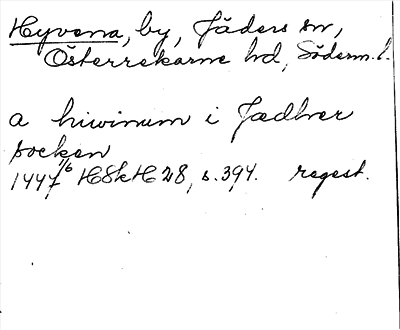 Hyvena, by, Jäders sn,
Österrekarne hd, Söderm. l.
a hiwinum i Jædhrer
socken
1447 1/6 HSkH 28, s. 394. regest.